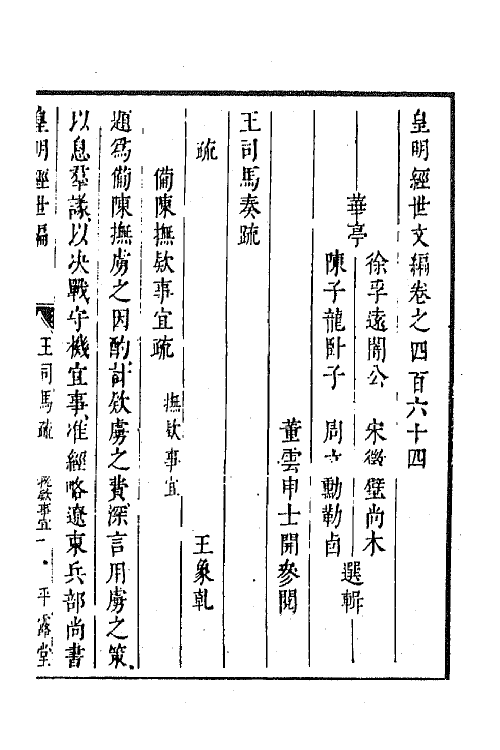 皇明經世文編卷之四百六十四
華亭 徐孚遠闇公 宋徵璧尚木 選輯
陳子龍臥子 周立勳勒卤
董雲申士開參閱
王司馬奏疏
疏 王象乾
備陳撫欵事宜疏 撫欵事宜
題爲備陳撫虜之因酌計欵虜之費深言用虜之策
以息羣議以决戰守機宜事准經略遼東兵部尚書
皇明經世編 王司馬疏 撫欵事宜 一 平露堂